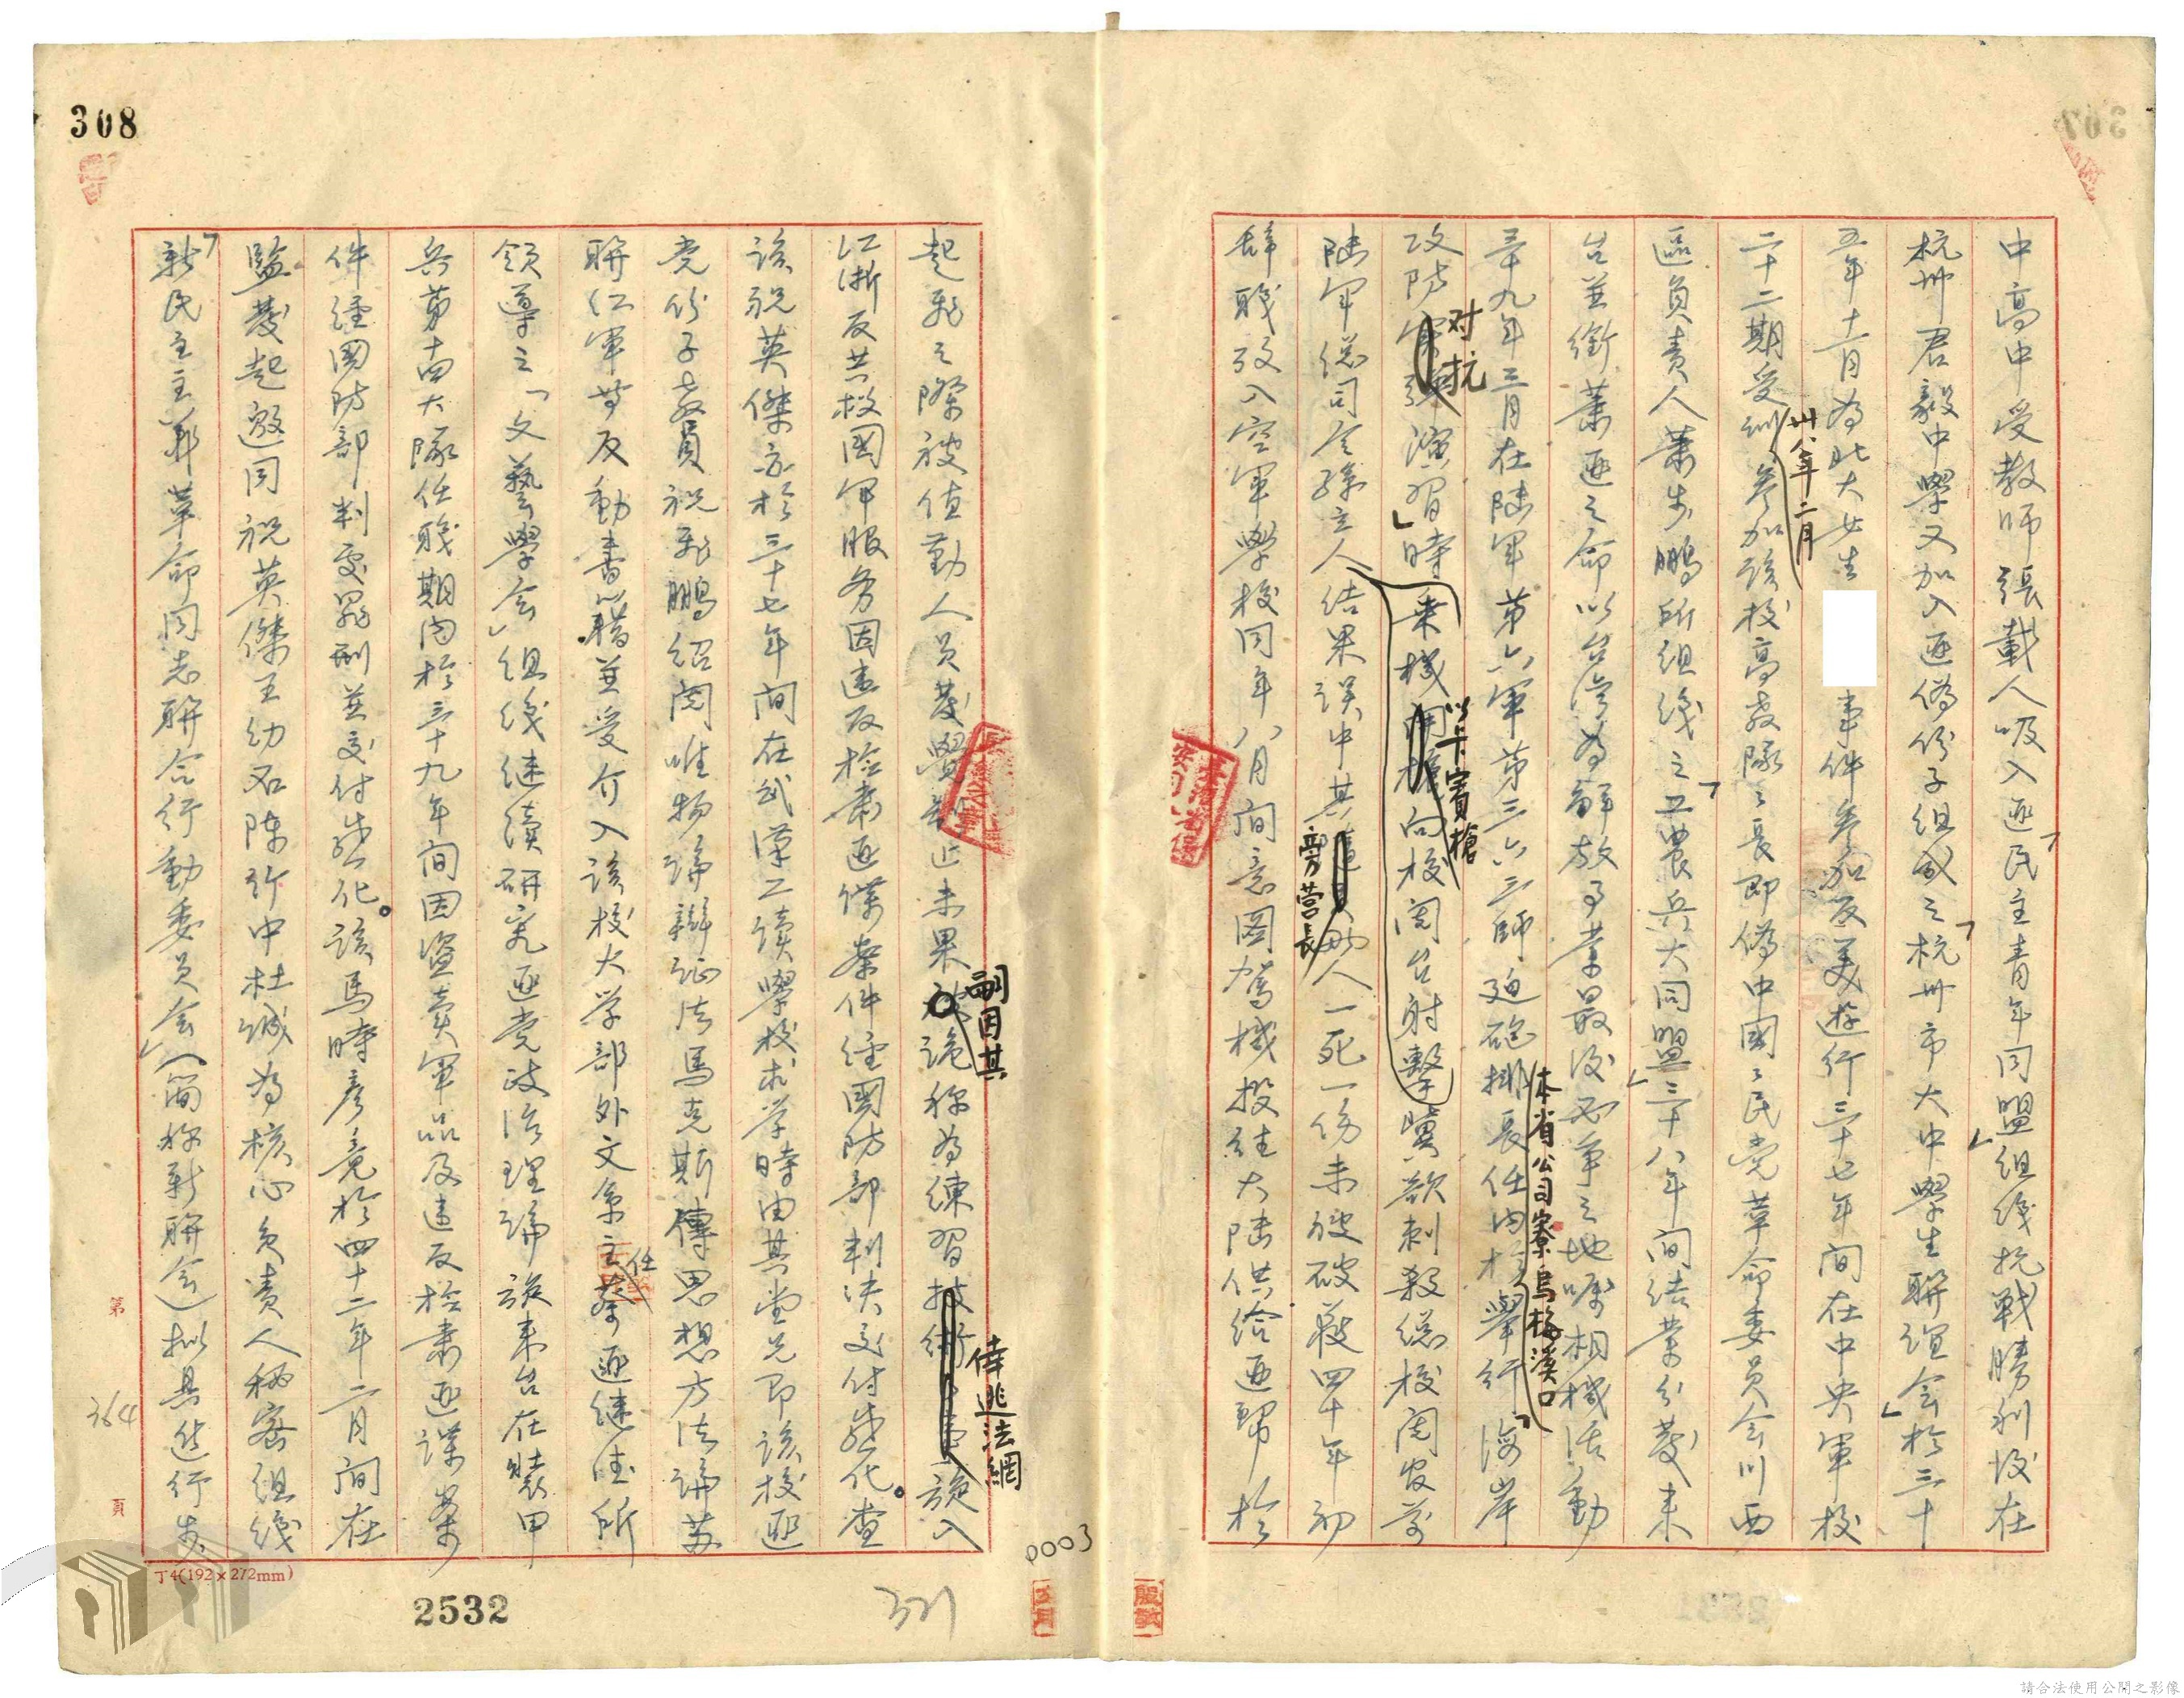 307
中高中受敎師張載人吸入匪「民主青年同盟」組織抗戰勝利後在
杭州君毅中學又加入匪偽份子組成之「杭州市大中學生聯誼会」於三十
五年十二月為北大女生 事件參加反美遊行三十七年間在中央軍校
二十二期受訓卅八年二月參加該校高敎隊々長即偽中國々民党革命委員会川西
區負責人蕭步鵬所組織之「工農兵大同盟」三十八年間結業分發来
台並銜蕭匪之命以台湾為解放事業最後必爭之地嘱相機活動
三十九年三月在陸軍第六軍第三六三師迫砲排長任内於本省公司寮烏梅溪口舉行「海岸
攻防对抗演習」時乘機以卡賓槍向校閲台射擊冀欲刺殺總校閲官前
陸軍總司令孫立人結果誤中其旁营長 人一死一傷未被破獲四十年初
辞職攷入空軍學校同年八月間意圖駕機投往大陸供給匪幫於
308
起飛之際被值勤人員發覺 止未果嗣因其詭称為練習 倖逃法網 旋入
江浙反共救國軍服务因違反检肅匪諜案件經國防部判决交付感化。查
該祝英傑亦於三十七年間在武漢工讀學校求学時由其堂兄即該校匪
党份子敎員祝飛鵬紹閲唯物論辯証法馬克斯傳思想方法論苏
聯红軍等反動書籍並受介入該校大学部外文系主任蔡匪継沣所
領導之「文藝學会」組織継續研究匪党政治理論旋来台在裝甲
兵第十四大隊任職期内於三十九年間因盜賣軍品及違反检肅匪諜案
件經國防部判處罪刑並交付感化。該馬時彥竟於四十二年二月間在
監發起邀同祝英傑王幼石陳行中杜誠為核心负责人秘密組織
「新民主主義革命同志聯合行動委員会」（簡称新聯会）拟具進行步
第
364
頁
丁4(192×272mm)
2532
371
0003
請合法使用公開之影像